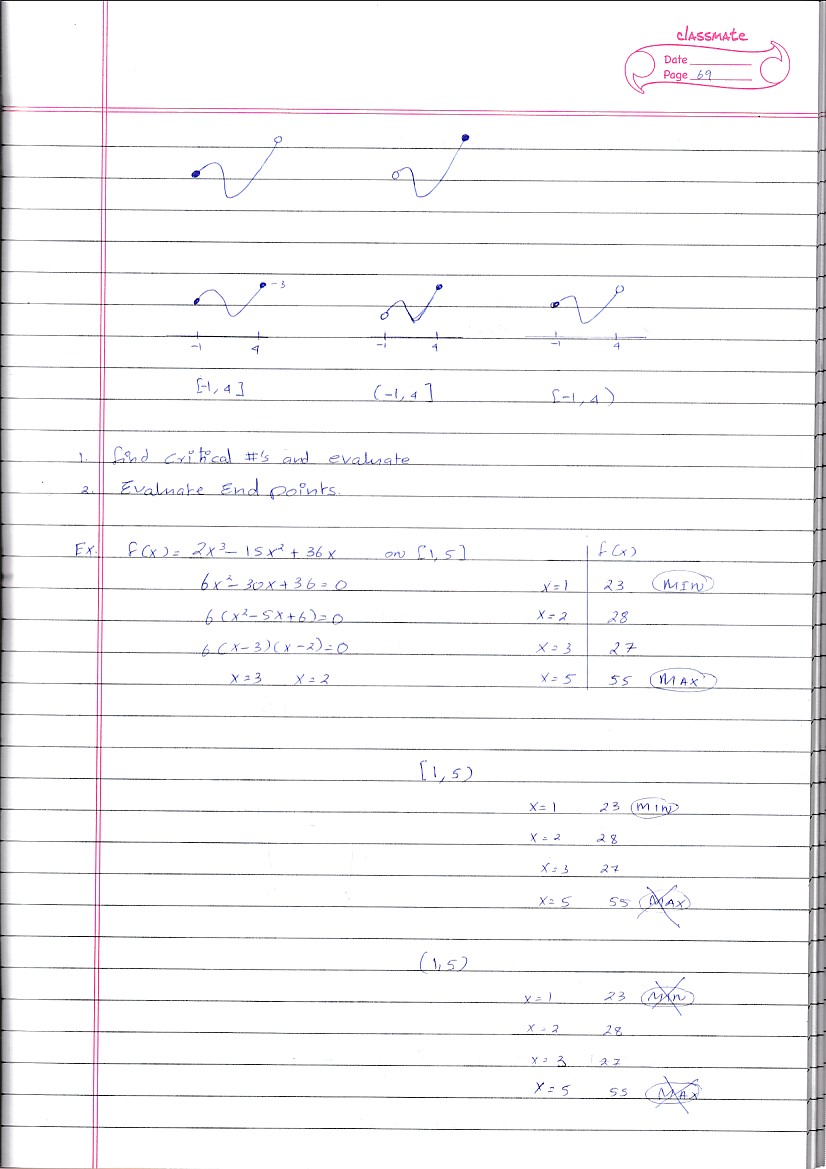 classmate
Date
Page 69
-3
-1 4 -1 4 -1 4
[-1, 4] (-1, 4] [-1, 4)
1. find critical #'s and evaluate
2. Evaluate End points.
Ex. f(x) = 2x³ - 15x² + 36x on [1, 5] f(x)
6x² - 30x + 36 = 0 x=1 23 MIN
6(x² - 5x + 6) = 0 x=2 28
6(x-3)(x-2) = 0 x=3 27
x=3 x=2 x=5 55 MAX
[1, 5)
x=1 23 MIN
x=2 28
x=3 27
x=5 55 MAX
(1, 5)
x=1 23 MIN
x=2 28
x=3 27
x=5 55 MAX